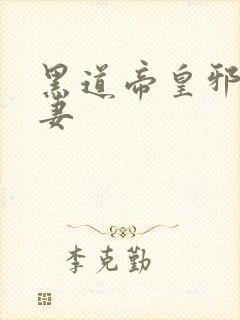 黑道帝皇邪
妻
李克勤